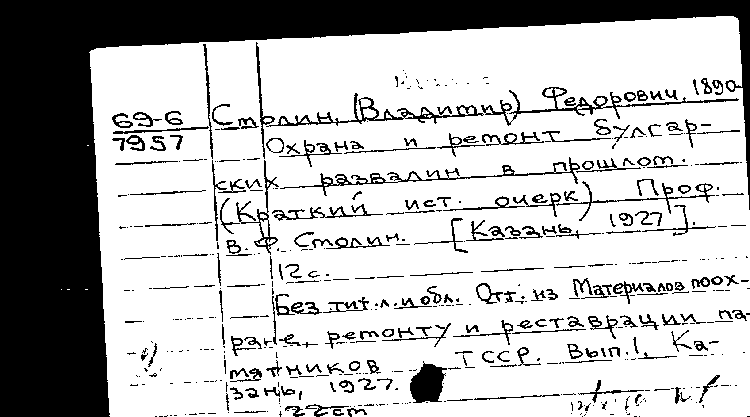 69-6 Столин, (Владимир) Федорович. 1890-
7957 Охрана и ремонт булгар-
ских развалин в прошлом.
(Краткий ист. очерк) Проф.
В. Ф. Столин. [Казань, 1927].
12 с.
Без тит. л. и обл. Отт. из Материалов по ох-
ране, ремонту и реставрации па-
мятников ТССР. Вып. 1, Ка-
зань, 1927.
2
22 cm